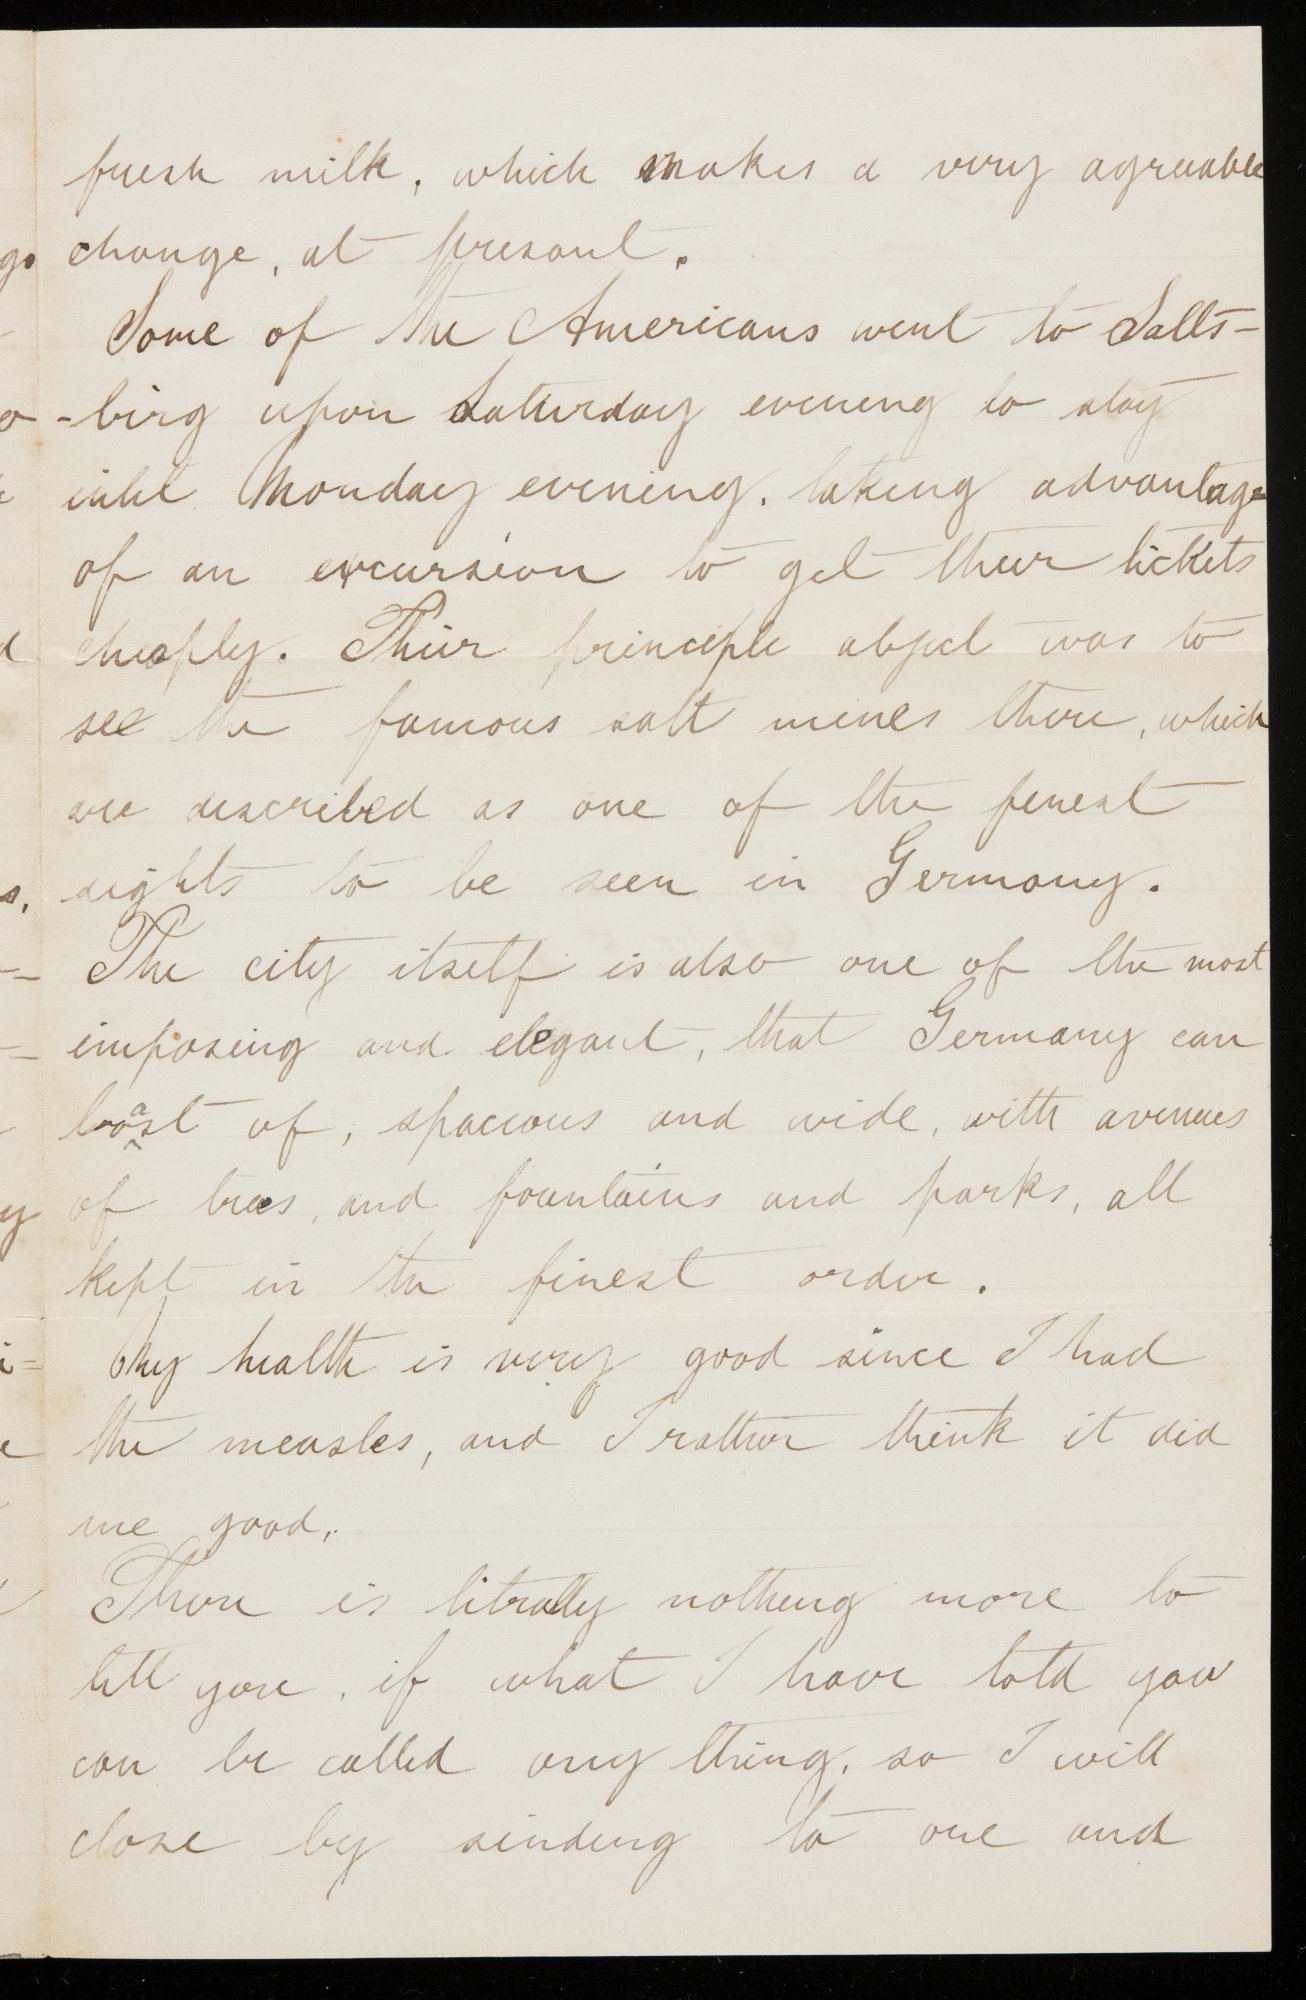 fresh milk, which makes a very agreeable
change, at present.
Some of the Americans went to Salts-
-birg upon Saturday evening to stay
until Monday evening, taking advantage
of an excursion to get their tickets
cheaply. Their principle object was to
see the famous salt mines there, which
are described as one of the finest
sights to be seen in Germany.
The city itself is also one of the most
imposing and elegant, that Germany can
boast of, spacious and wide, with avenues
of trees, and fountains and parks, all
kept in the finest order.
My health is very good since I had
the measles, and I rather think it did
me good.
There is litrally nothing more to
tell you, if what I have told you
can be called any thing, so I will
close by sending to one and